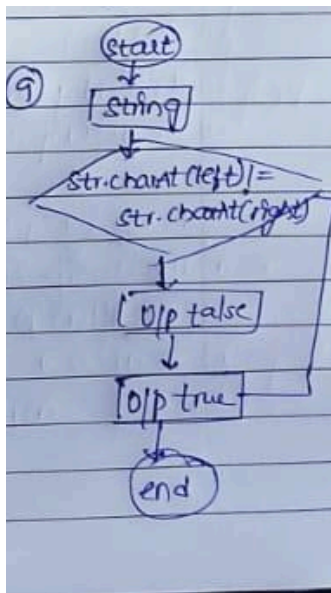 start
9
string
str.charAt(left)!=
str.charAt(right)
O/P false
O/P true
end